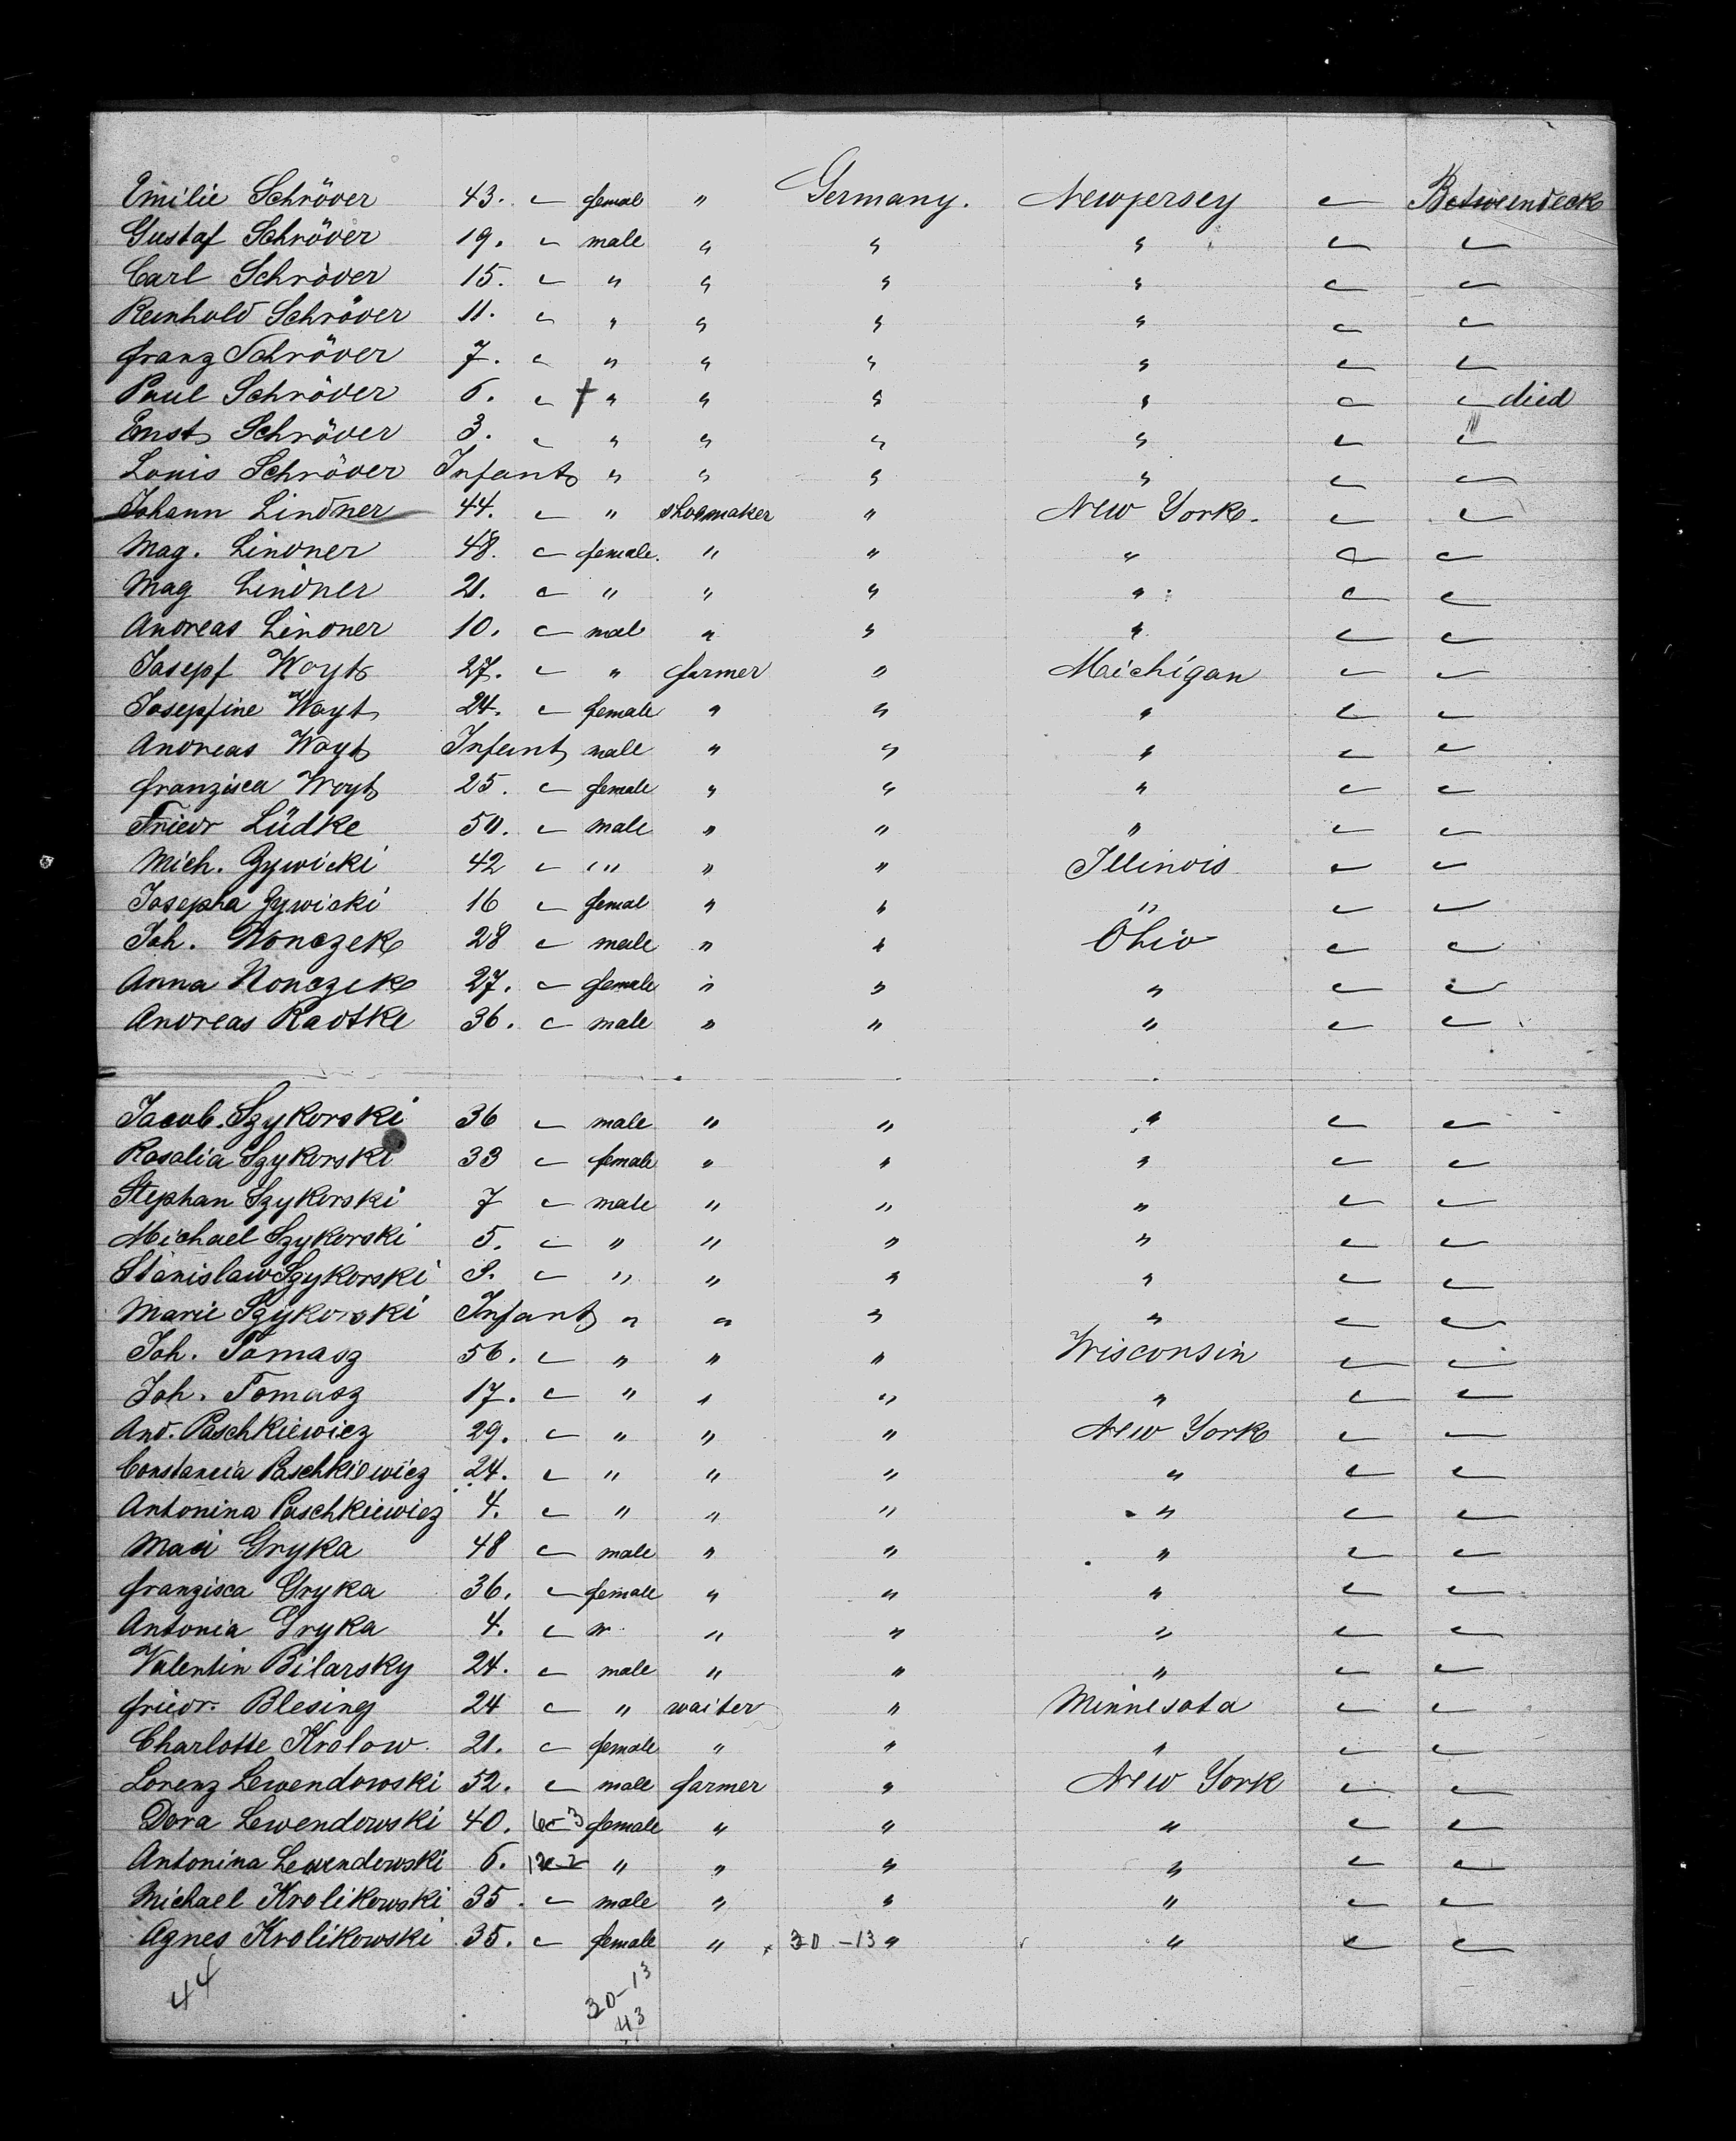 Emilie Schröder 43. female " Germany. Newjersey Betweendeck
Gustaf Schröder 19. male " " "
Carl Schröder 15. " " " "
Reinhold Schröder 11. " " " "
franz Schröder 7. " " " "
Paul Schröder 6. † " " " " died
Ernst Schröder 3. " " " "
Louis Schröder Infant " " " "
Johann Lindner 44. " shoemaker " New York.
Mag. Lindner 48. female. " " "
Mag Lindner 21. " " " "
Andreas Lindner 10. male " " "
Josepf Woyt 27. " farmer " Michigan
Josepfine Woyt 24. female " " "
Andreas Woyt Infant male " " "
franzisca Woyt 25. female " " "
Friedr Lüdke 50. male " " "
Mich. Zywicki 42 " " " Illinois
Josepha Zywicki 16 femal " " "
Joh. Nonczek 28 male " " Ohio
Anna Nonczek 27. female " " "
Andreas Radtke 36. male " " "
Jacob. Szykorski 36 male " " "
Rosalia Szykorski 33 female " " "
Stephan Szykorski 7 male " " "
Michael Szykorski 5. " " " "
Stanislaw Szykorski 3. " " " "
Marie Szykorski Infant " " " "
Joh. Tomasz 56. " " " Wisconsin
Joh. Tomasz 17. " " " "
And. Paschkiewicz 29. " " " New York
Constancia Paschkiewicz 24. " " " "
Antonina Paschkiewicz 4. " " " "
Gryka 48 male " " "
franzisca Gryka 36. female " " "
Antonia Gryka 4. " " " "
Valentin Bilarsky 24. male " " "
friedr. Blesing 24 " waiter " Minnesota
Charlotte Krolow. 21. female " " "
Lorenz Lewendowski 52. male farmer " New York
Dora Lewendowski 40. female " " "
Antonina Lewendowski 6. " " " "
Michael Krolikowski 35. male " " "
Agnes Krolikowski 35. female " 30-13 " "
44 30-13
43